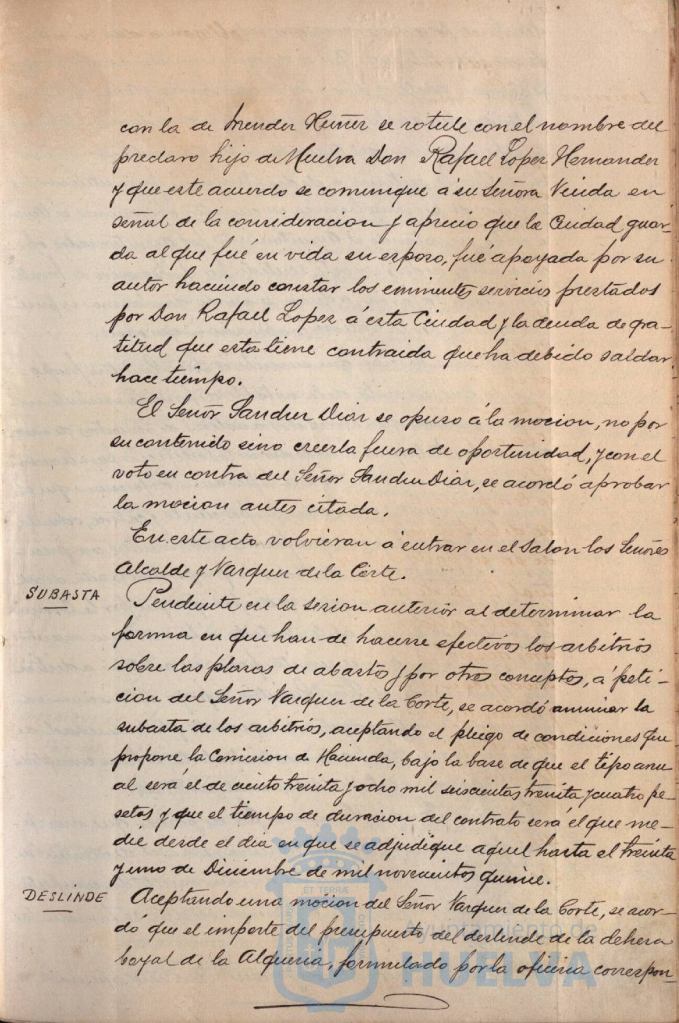 con la de Mendez Nuñez se rotule con el nombre del
preclaro hijo de Huelva Don Rafael Lopez Hernandez
y que este acuerdo se comunique á su Señora Viuda en
señal de la consideracion y aprecio que la Ciudad guar-
da al que fué en vida su esposo, fué apoyada por su
autor haciendo constar los eminentes servicios prestados
por Don Rafael Lopez á esta Ciudad y la deuda de gra-
titud que esta tiene contraida que ha debido saldar
hace tiempo.
El Señor Sanchez Diaz se opuso á la mocion, no por
su contenido sino creerla fuera de oportunidad, y con el
voto en contra del Señor Sanchez Diaz, se acordó aprobar
la mocion antes citada.
En este acto volvieron á entrar en el Salon los Señores
Alcalde y Vazquez de la Corte.
SUBASTA
Pendiente en la sesion anterior al determinar la
forma en que han de hacerse efectivos los arbitrios
sobre las plazas de abastos y por otros conceptos, á peti-
cion del Señor Vazquez de la Corte, se acordó anunciar la
subasta de los arbitrios, aceptando el pliego de condiciones que
propone la Comision de Hacienda, bajo la base de que el tipo anu-
al será el de ciento treinta y ocho mil seiscientas treinta y cuatro pe-
setas y que el tiempo de duracion del contrato será el que me-
die desde el dia en que se adjudique aquel hasta el treinta
y uno de Diciembre de mil novecientos quince.
DESLINDE
Aceptando una mocion del Señor Vazquez de la Corte, se acor-
dó que el importe del presupuesto del deslinde de la dehesa
boyal de la Alqueria, formulado por la oficina correspon-
ET TERRÆ
Ayuntamiento de
HUELVA